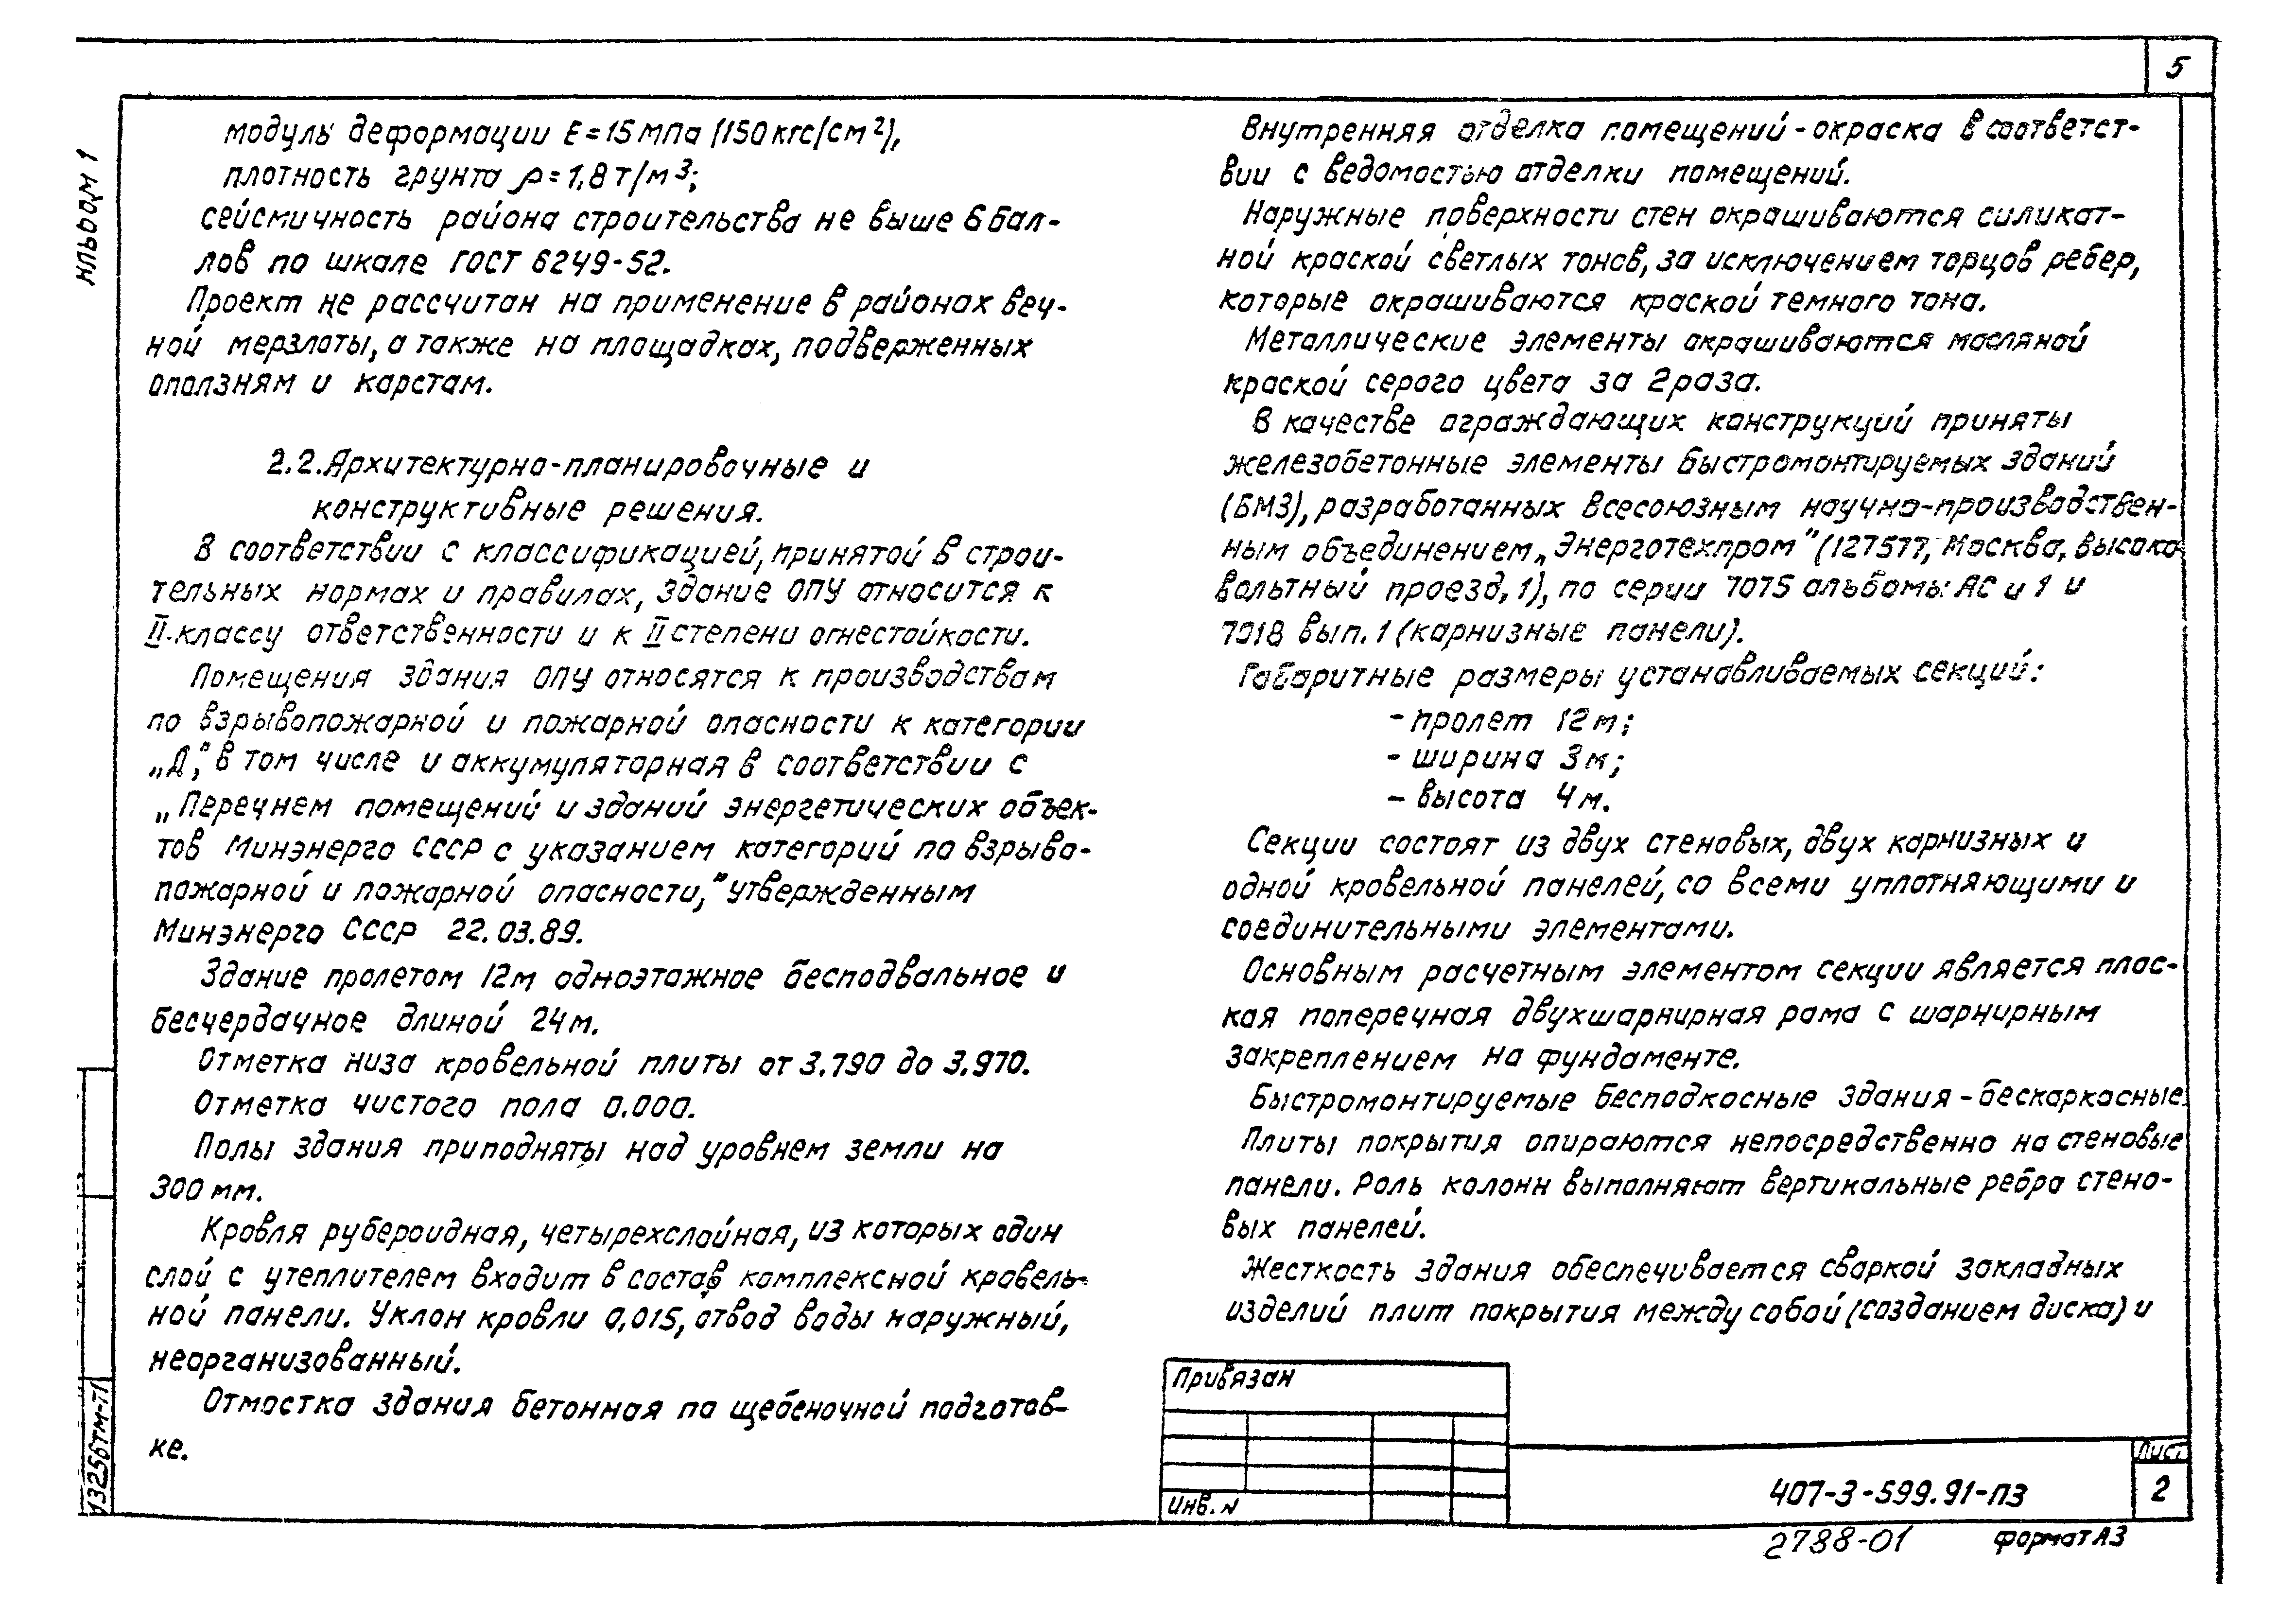 5
Альбом 1
модуль деформации E=15МПа (150кгс/см²),
плотность грунта ρ=1,8т/м³;
сейсмичность района строительства не выше 6 бал-
лов по шкале ГОСТ 6249-52.
Проект не рассчитан на применение в районах веч-
ной мерзлоты, а также на площадках, подверженных
оползням и карстам.
2.2. Архитектурно-планировочные и
конструктивные решения.
В соответствии с классификацией, принятой в строи-
тельных нормах и правилах, здание ОПУ относится к
II-классу ответственности и к II степени огнестойкости.
Помещения здания ОПУ относятся к производствам
по взрывопожарной и пожарной опасности к категории
„Д”, в том числе и аккумуляторная в соответствии с
„Перечнем помещений и зданий энергетических объек-
тов Минэнерго СССР с указанием категорий по взрыво-
пожарной и пожарной опасности,” утвержденным
Минэнерго СССР 22.03.89.
Здание пролетом 12м одноэтажное бесподвальное и
бесчердачное длиной 24м.
Отметка низа кровельной плиты от 3.790 до 3.970.
Отметка чистого пола 0.000.
Полы здания приподняты над уровнем земли на
300 мм.
Кровля рубероидная, четырехслойная, из которых один
слой с утеплителем входит в состав комплексной кровель-
ной панели. Уклон кровли 0,015, отвод воды наружный,
неорганизованный.
Отмостка здания бетонная по щебеночной подготов-
ке.
Внутренняя отделка помещений - окраска в соответст-
вии с ведомостью отделки помещений.
Наружные поверхности стен окрашиваются силикат-
ной краской светлых тонов, за исключением торцов ребер,
которые окрашиваются краской темного тона.
Металлические элементы окрашиваются масляной
краской серого цвета за 2 раза.
В качестве ограждающих конструкций приняты
железобетонные элементы быстромонтируемых зданий
(БМЗ), разработанных Всесоюзным научно-производствен-
ным объединением „Энерготехпром” (127577, Москва, Высоко
вольтный проезд, 1), по серии 7075 альбомы АС и 1 и
7018 вып. 1 (карнизные панели).
Габаритные размеры устанавливаемых секций:
- пролет 12м;
- ширина 3м;
- высота 4м.
Секции состоят из двух стеновых, двух карнизных и
одной кровельной панелей, со всеми уплотняющими и
соединительными элементами.
Основным расчетным элементом секции является плос-
кая поперечная двухшарнирная рама с шарнирным
закреплением на фундаменте.
Быстромонтируемые бесподкосные здания - бескаркасные.
Плиты покрытия опираются непосредственно на стеновые
панели. Роль колонн выполняют вертикальные ребра стено-
вых панелей.
Жесткость здания обеспечивается сваркой закладных
изделий плит покрытия между собой (созданием диска) и
Привязан
Инв. N
407-3-599.91-ПЗ
Лист
2
13256тм-т1
2788-01
формат А3